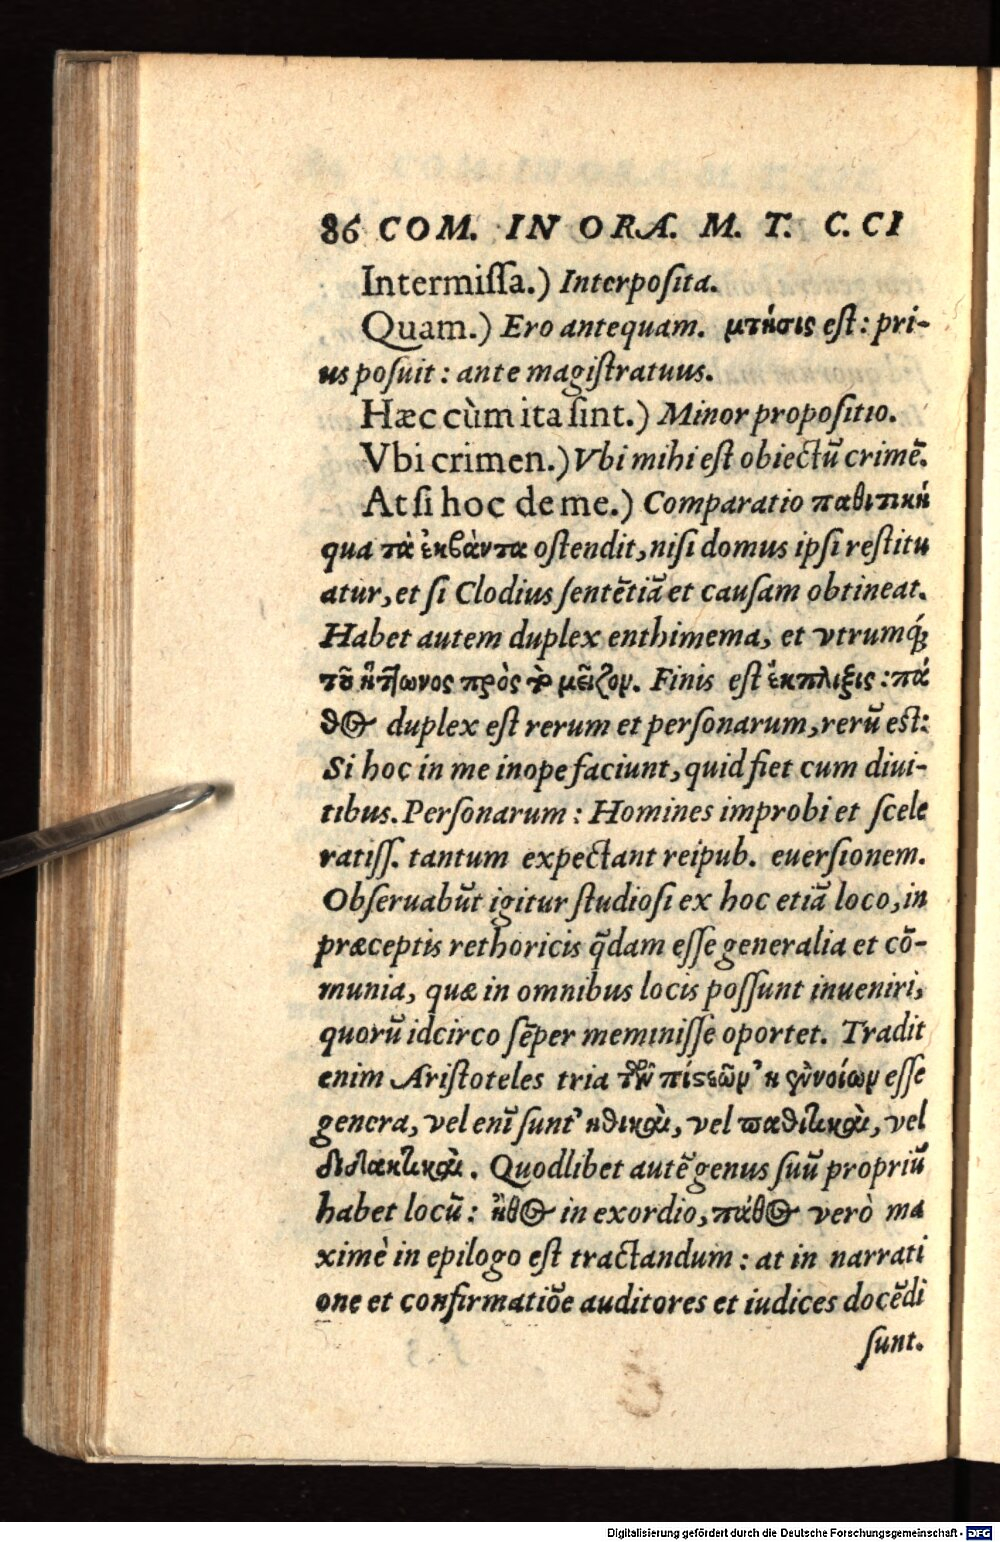 86 COM. IN ORA. M. T. C. CI
Intermiſſa.) Interpoſita.
Quam.) Ero antequam. μτήσις eſt: pri-
us poſuit: ante magiſtratuus.
Hæc cùm ita ſint.) Minor propoſitio.
Vbi crimen.) Vbi mihi eſt obiectũ crimẽ.
At ſi hoc de me.) Comparatio παθιτικὴ
qua τὰ ἐκβάντα oſtendit, niſi domus ipſi reſtitu
atur, et ſi Clodius ſentẽtiã et cauſam obtineat.
Habet autem duplex enthimema, et vtrumq́;
τοῦ ἥττωνος πρὸς τὸ μεῖζον. Finis eſt ἐκπληξις: πά
θος duplex eſt rerum et perſonarum, rerũ eſt:
Si hoc in me inope faciunt, quid fiet cum diui-
tibus. Perſonarum: Homines improbi et ſcele
ratiſſ. tantum expectant reipub. euerſionem.
Obſeruabũt igitur ſtudioſi ex hoc etiã loco, in
præceptis rethoricis q̃dam eſſe generalia et cõ-
munia, quæ in omnibus locis poſſunt inueniri,
quorũ idcirco ſẽper meminiſſe oportet. Tradit
enim Ariſtoteles tria τῶν πίστεων esse
genera, vel enĩ ſunt ἠθικαὶ, vel παθιτικαὶ, vel
διδακτικαὶ. Quodlibet autẽ genus ſuũ propriũ
habet locũ: ἦθος in exordio, πάθος verò ma
ximè in epilogo eſt tractandum: at in narrati
one et confirmatiõe auditores et iudices docẽdi
ſunt.
Digitalisierung gefördert durch die Deutsche Forschungsgemeinschaft - DFG